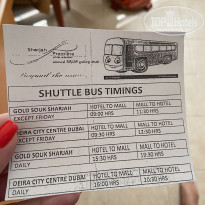 TopHotels
Sharjah
Premiere
SHUTTLE BUS TIMINGS
GOLD SOUK SHARJAH HOTEL TO MALL MALL TO HOTEL
EXCEPT FRIDAY 09:00 HRS 11:30 HRS
DEIRA CITY CENTRE DUBAI HOTEL TO MALL MALL TO HOTEL
EXCEPT FRIDAY 09:30 HRS 12:30 HRS
GOLD SOUK SHARJAH HOTEL TO MALL MALL TO HOTEL
DAILY 15:30 HRS 19:30 HRS
DEIRA CITY CENTRE DUBAI HOTEL TO MALL MALL TO HOTEL
DAILY 16:00 HRS 20:30 HRS